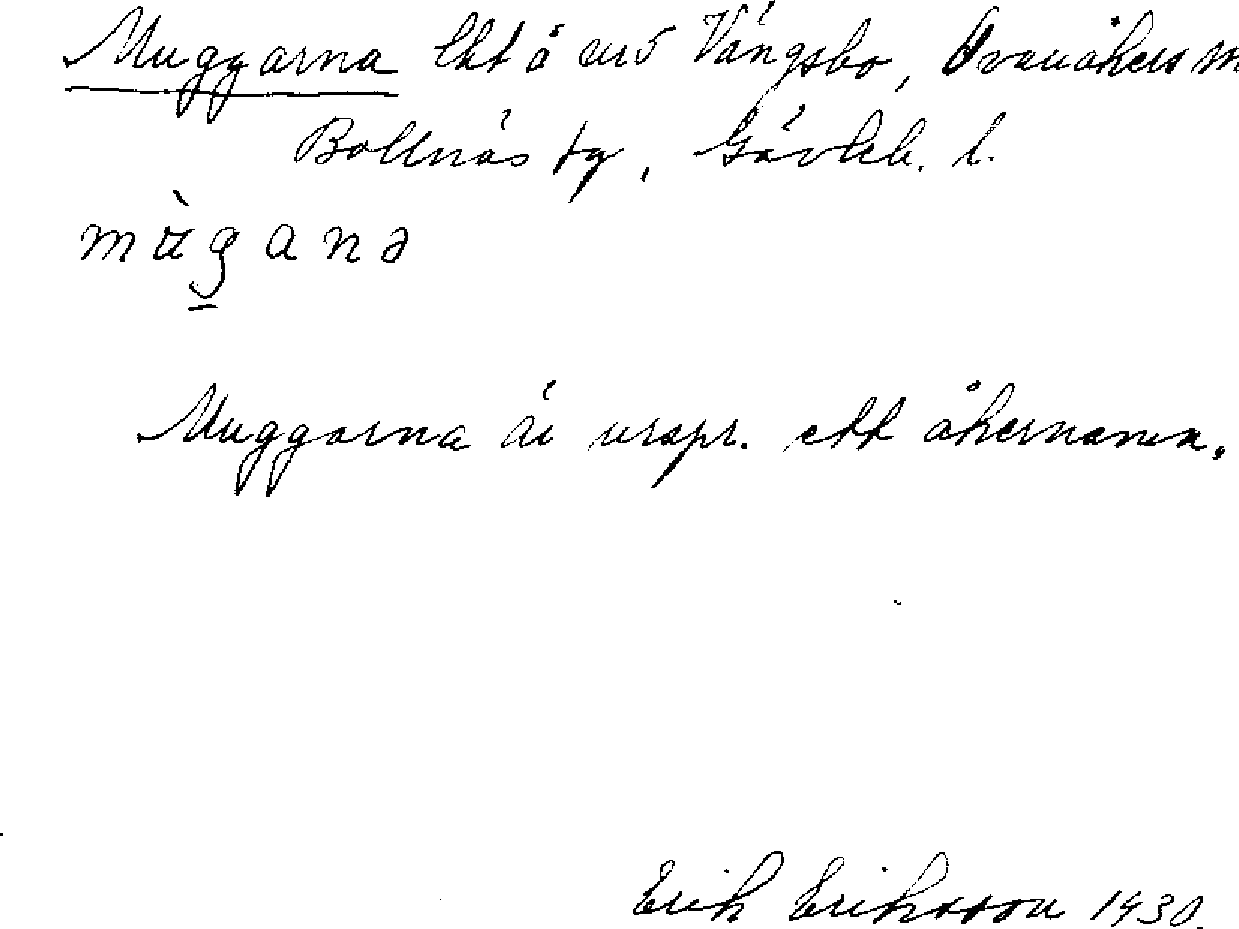 Muggarna lht å vid Vängsbo, Ovanåkers
Bollnäs fg, Gävleb. l.
Muggarna är urspr. ett åkernamn.
Erik Eriksson 1930.